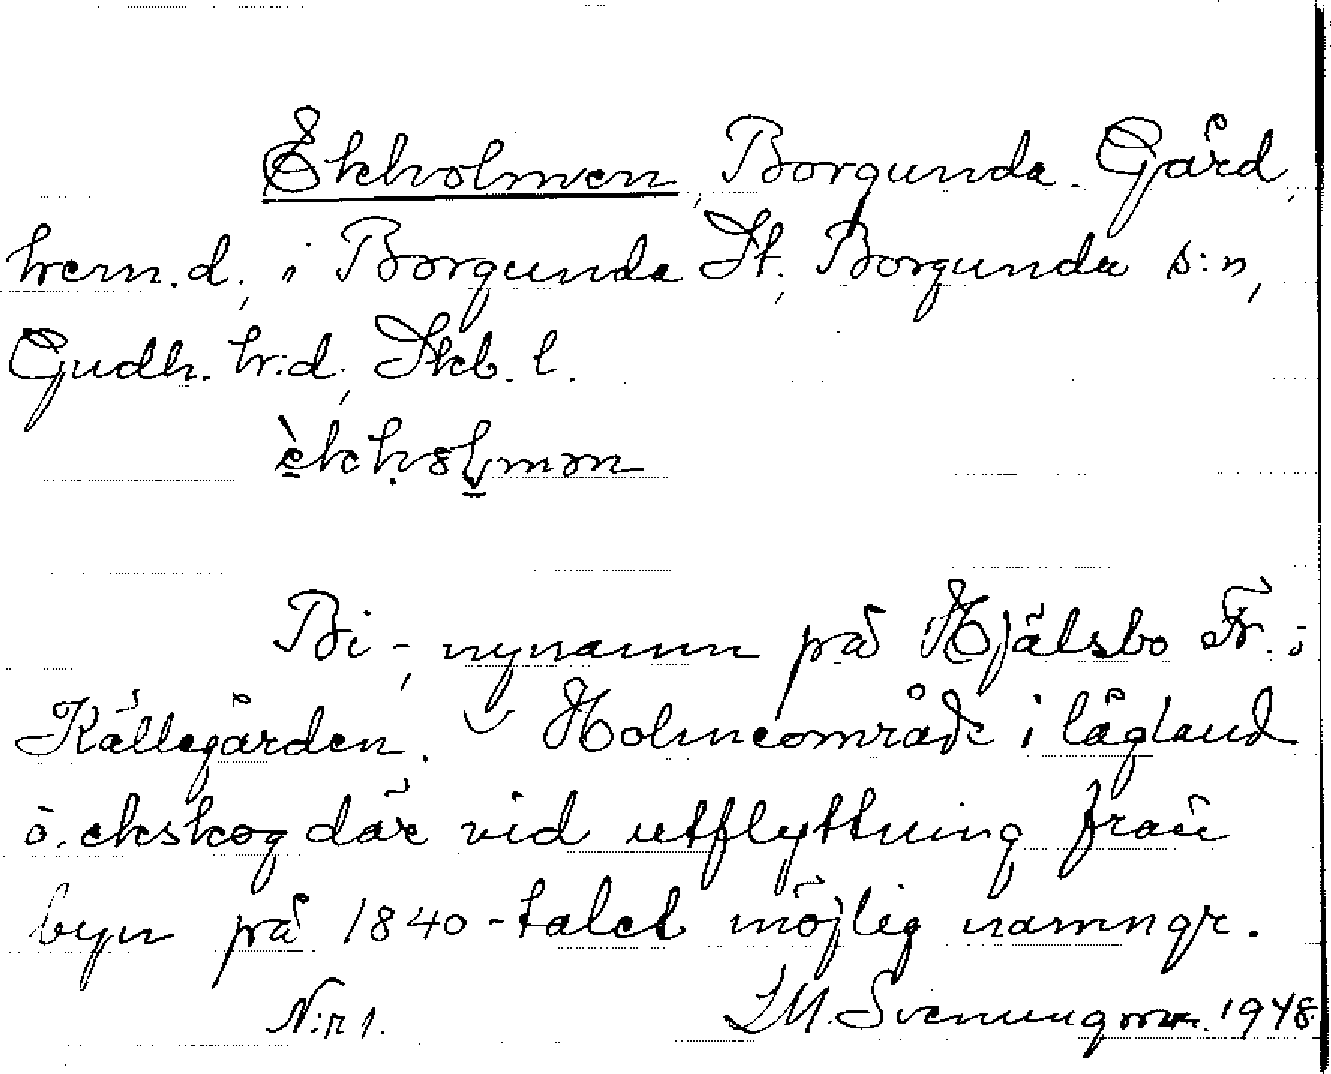 Ekholmen, Borgunda. Gård,
hem.d., i Borgunda St., Borgunda s:n,
Gudh. h:d, Skb. l.
Bi-, nynamn på Hjälsbo Fr. i
Källegården. Holmeområde i lågland
o. ekskog där vid utflyttning från
byn på 1840-talet möjlig namngr.
N:r 1. LM. Svenungsson. 1948